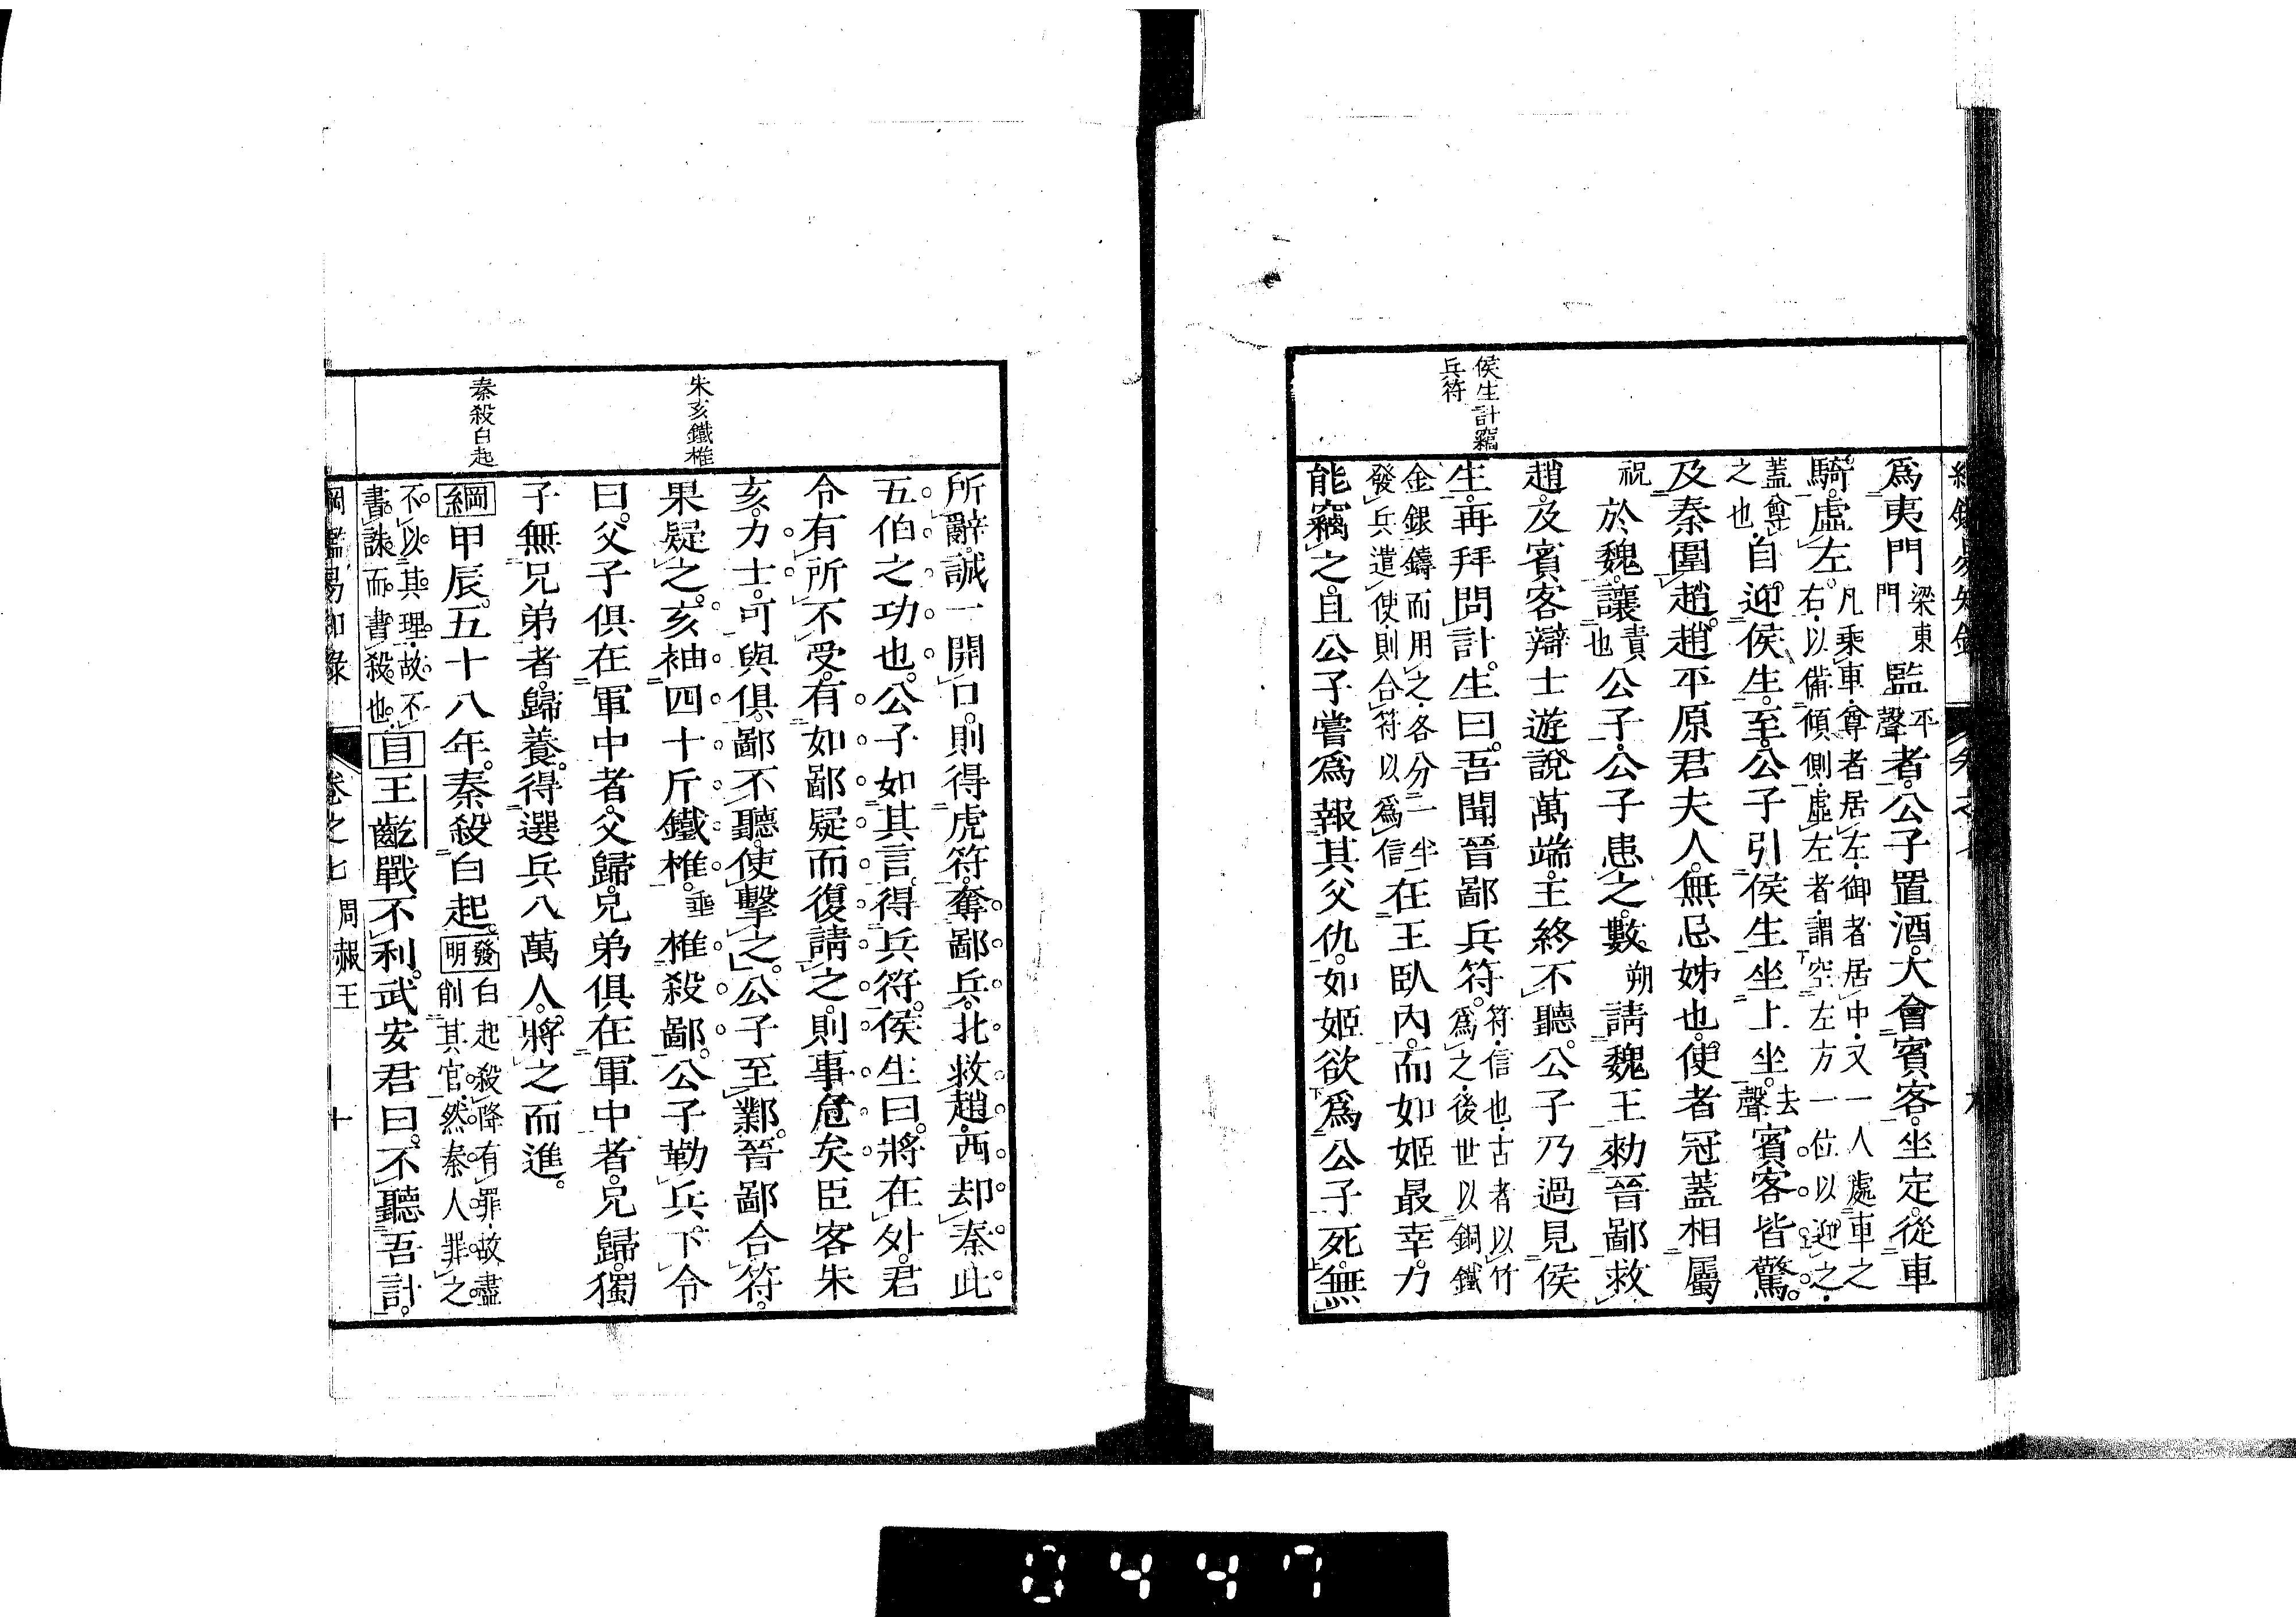 侯生計竊
兵符
爲夷門梁東門監平聲者。公子置酒。大會賓客。坐定。從車
騎。虛左。凡乘車。尊者居左。御者居中。又一人處車之右。以備傾側。虛左者。謂空左方一位以迎之。
蓋尊之也。自迎侯生。至。公子引侯生坐上坐。去聲賓客皆驚。
及秦圍趙。趙平原君夫人。無忌姊也。使者冠蓋相屬
祝於魏。讓責也公子。公子患之。數朔請魏王勑晉鄙救
趙。及賓客辯士遊說萬端。王終不聽。公子乃過見侯
生。再拜問計。生曰。吾聞晉鄙兵符。符。信也。古者以竹爲之。後世以銅鐵
金銀鑄而用之。各分一半。發兵遣使。則合符以爲信在王臥內。而如姬最幸。力
能竊之。且公子嘗爲報其父仇。如姬欲爲公子死。無
朱亥鐵椎
秦殺白起
所辭。誠一開口。則得虎符。奪鄙兵。北救趙。西却秦。此
五伯之功也。公子如其言。得兵符。侯生曰。將在外。君
令有所不受。有如鄙疑而復請之。則事危矣。臣客朱
亥。力士。可與俱。鄙不聽。使擊之。公子至鄴。晉鄙合符。
果疑之。亥袖四十斤鐵椎。垂椎殺鄙。公子勒兵。下令
曰。父子俱在軍中者。父歸。兄弟俱在軍中者。兄歸。獨
子無兄弟者。歸養。得選兵八萬人。將之而進。
綱甲辰。五十八年。秦殺白起。發明白起殺降有罪。故盡削其官。然秦人罪之
不以其理。故不書誅而書殺也。目王齕戰不利。武安君曰。不聽吾計。
綱鑑易知錄 卷之七 周赧王 十